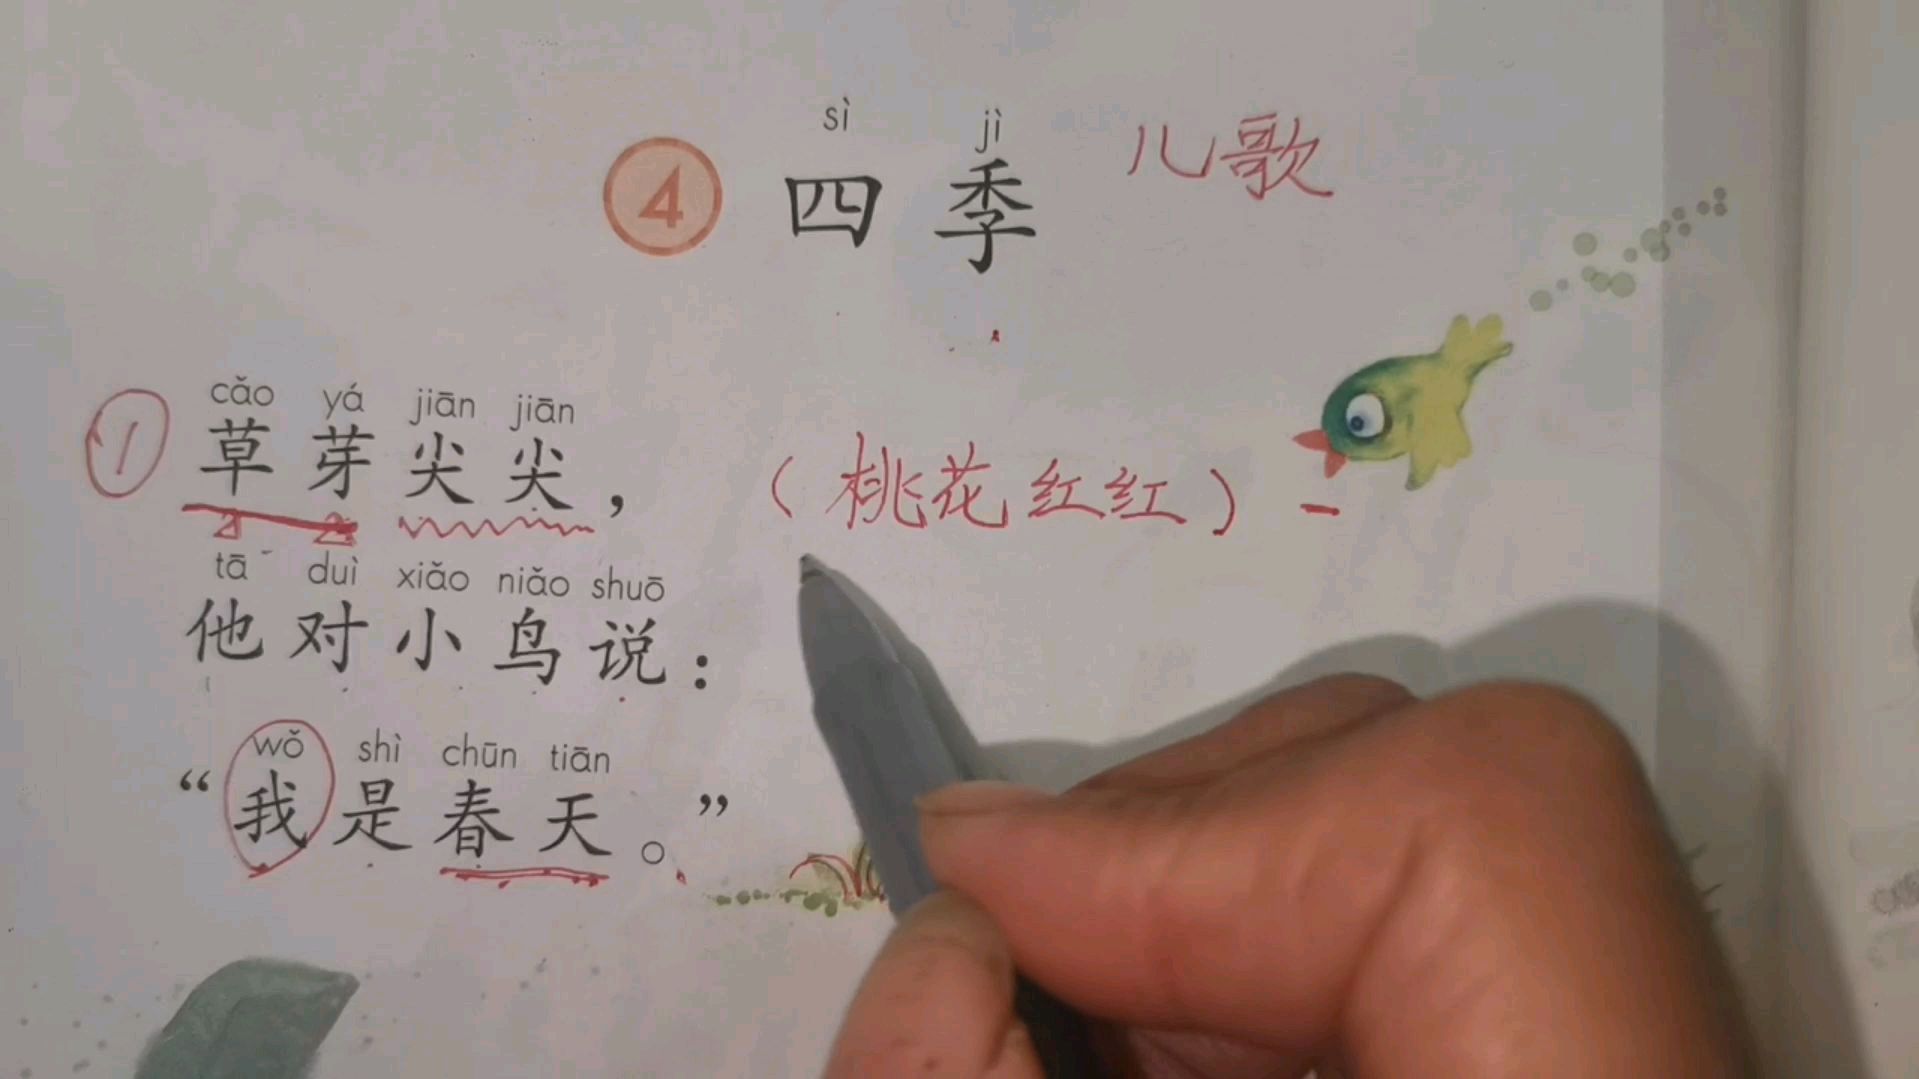 sì jì
④ 四季 儿歌
cǎo yá jiān jiān
① 草芽尖尖， （桃花红红）
tā duì xiǎo niǎo shuō
他对小鸟说：
wǒ shì chūn tiān
“我是春天。”